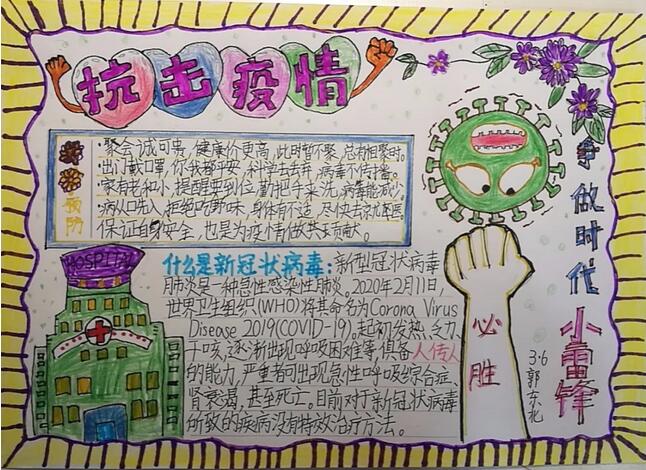 抗击疫情
预防
·聚会诚可贵，健康价更高，此时暂不聚，总有相聚时。
·出门戴口罩，你我都平安，科学去丢弃，病毒不传播。
·家有老和小，提醒要到位，勤把手来洗，病毒能减少
·病从口先入，拒绝吃野味，身体有不适，尽快去就医
保证自身安全，也是为疫情做贡献。
HOSPITAL
什么是新冠状病毒：新型冠状病毒
肺炎是一种急性感染性肺炎。2020年2月11日，
世界卫生组织(WHO)将其命名为Corona Virus
Disease 2019(COVID-19)。起初发热、乏力、
干咳，逐渐出现呼吸困难等，具备人传人
的能力，严重者可出现急性呼吸综合症、
肾衰竭，甚至死亡，目前对于新冠状病毒
所致的疾病没有特效治疗方法。
必胜
争做时代小雷锋
3.6